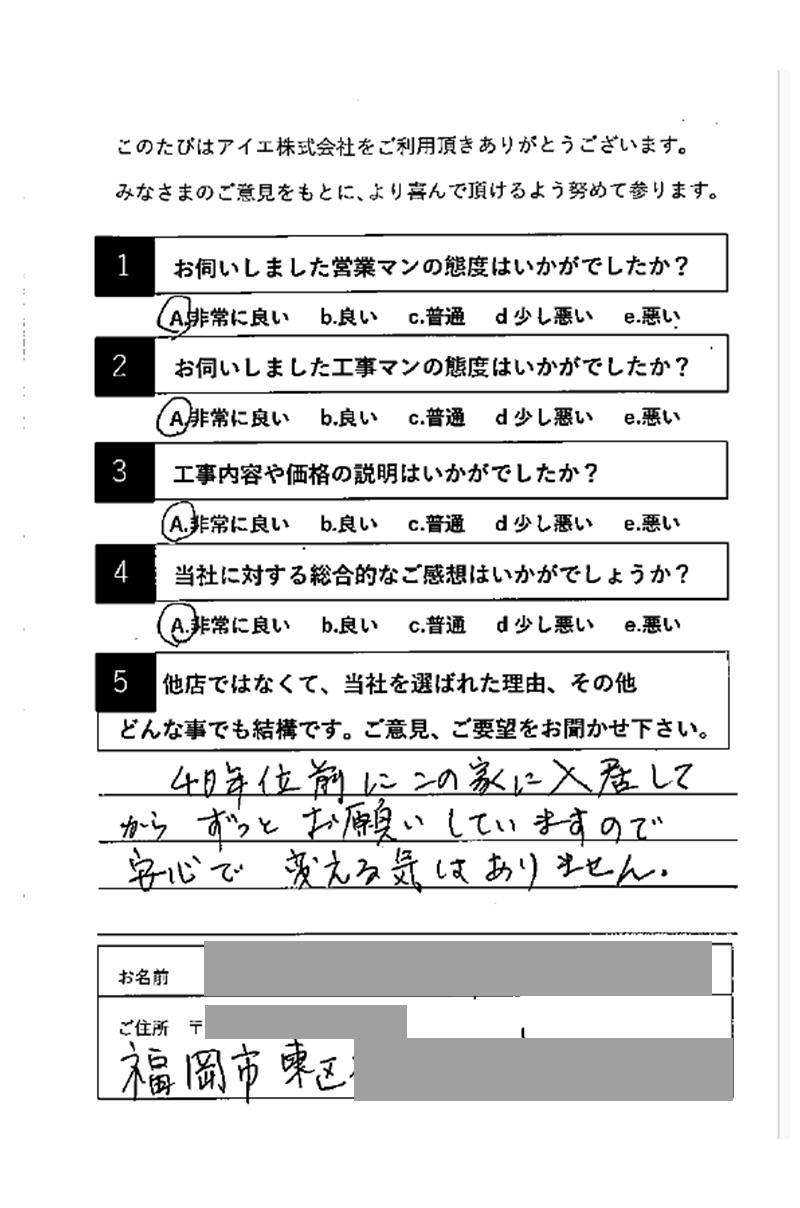 このたびはアイエ株式会社をご利用頂きありがとうございます。
みなさまのご意見をもとに、より喜んで頂けるよう努めて参ります。
1 お伺いしました営業マンの態度はいかがでしたか？
A.非常に良い b.良い c.普通 d 少し悪い e.悪い
2 お伺いしました工事マンの態度はいかがでしたか？
A.非常に良い b.良い c.普通 d 少し悪い e.悪い
3 工事内容や価格の説明はいかがでしたか？
A.非常に良い b.良い c.普通 d 少し悪い e.悪い
4 当社に対する総合的なご感想はいかがでしょうか？
A.非常に良い b.良い c.普通 d 少し悪い e.悪い
5 他店ではなくて、当社を選ばれた理由、その他
どんな事でも結構です。ご意見、ご要望をお聞かせ下さい。
40年位前にこの家に入居して
からずっとお願いしていますので
安心で変える気はありません。
お名前
ご住所 〒
福岡市東区